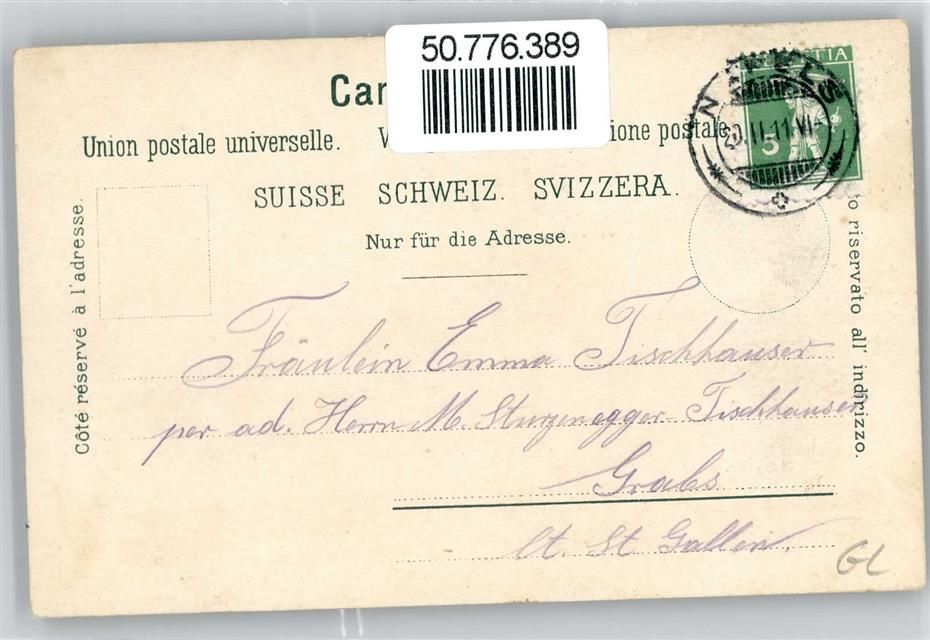 50.776.389
HELVETIA
5
Union postale universelle.
SUISSE SCHWEIZ. SVIZZERA.
Nur für die Adresse.
Côté réservé à l'adresse.
riservato all' indirizzo.
Fräulein Emma Tischhauser
per ad. Herrn M. Sturzenegger-Tischhauser
Grabs
Ct. St Gallen.
GL